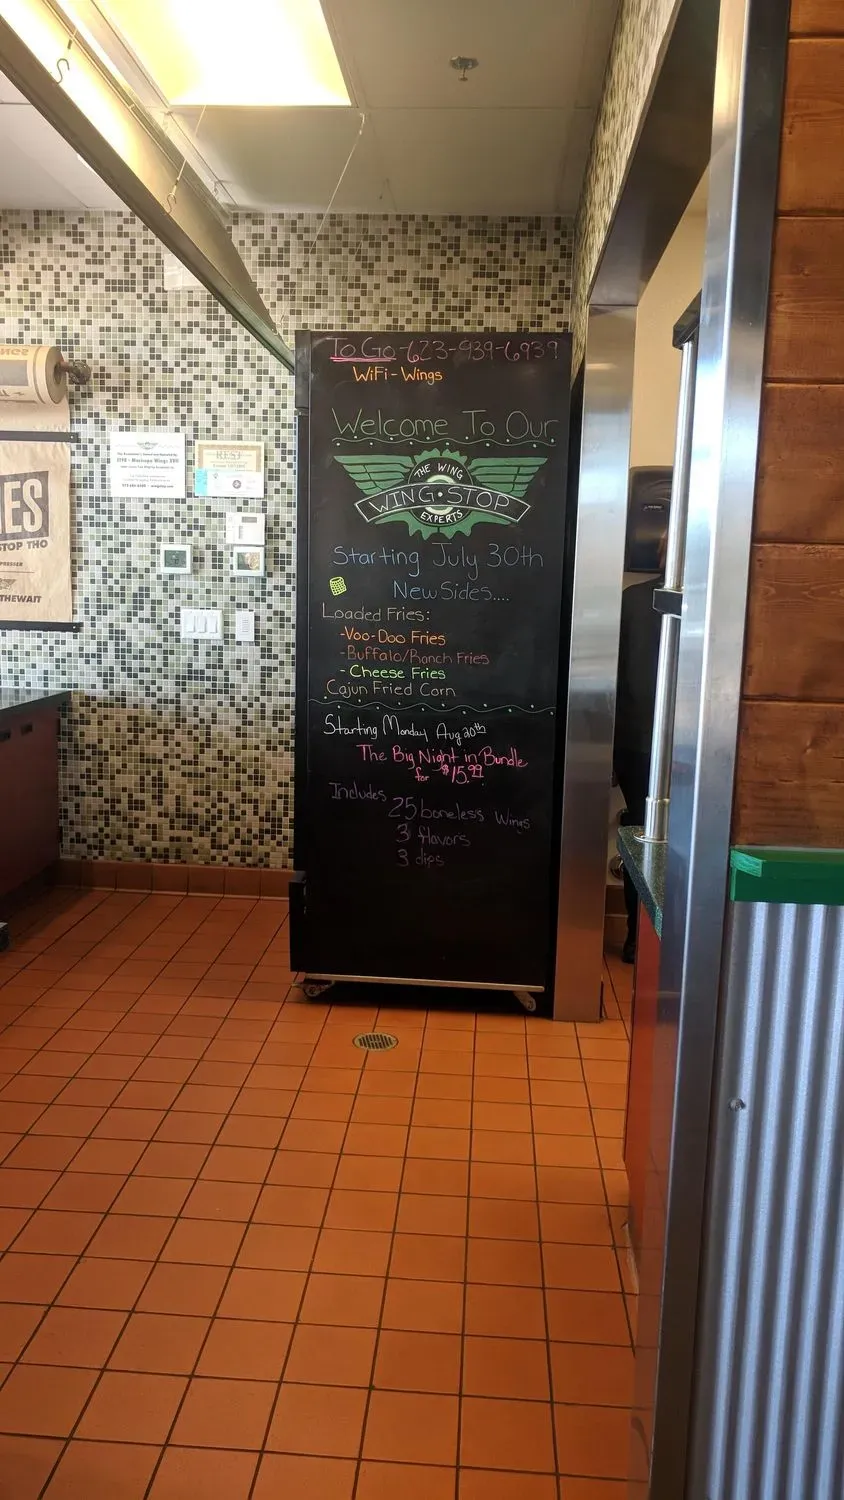 To Go - 623-939-6939
WiFi - Wings
Welcome To Our
THE WING
WING•STOP
EXPERTS
Starting July 30th
New Sides....
Loaded Fries:
-Voo-Doo Fries
-Buffalo/Ranch Fries
- Cheese Fries
Cajun Fried Corn
Starting Monday Aug 20th
The Big Night in Bundle
for $15.99
Includes
25 boneless Wings
3 flavors
3 dips
BEST
ES
STOP THO
PRESSER
THEWAIT